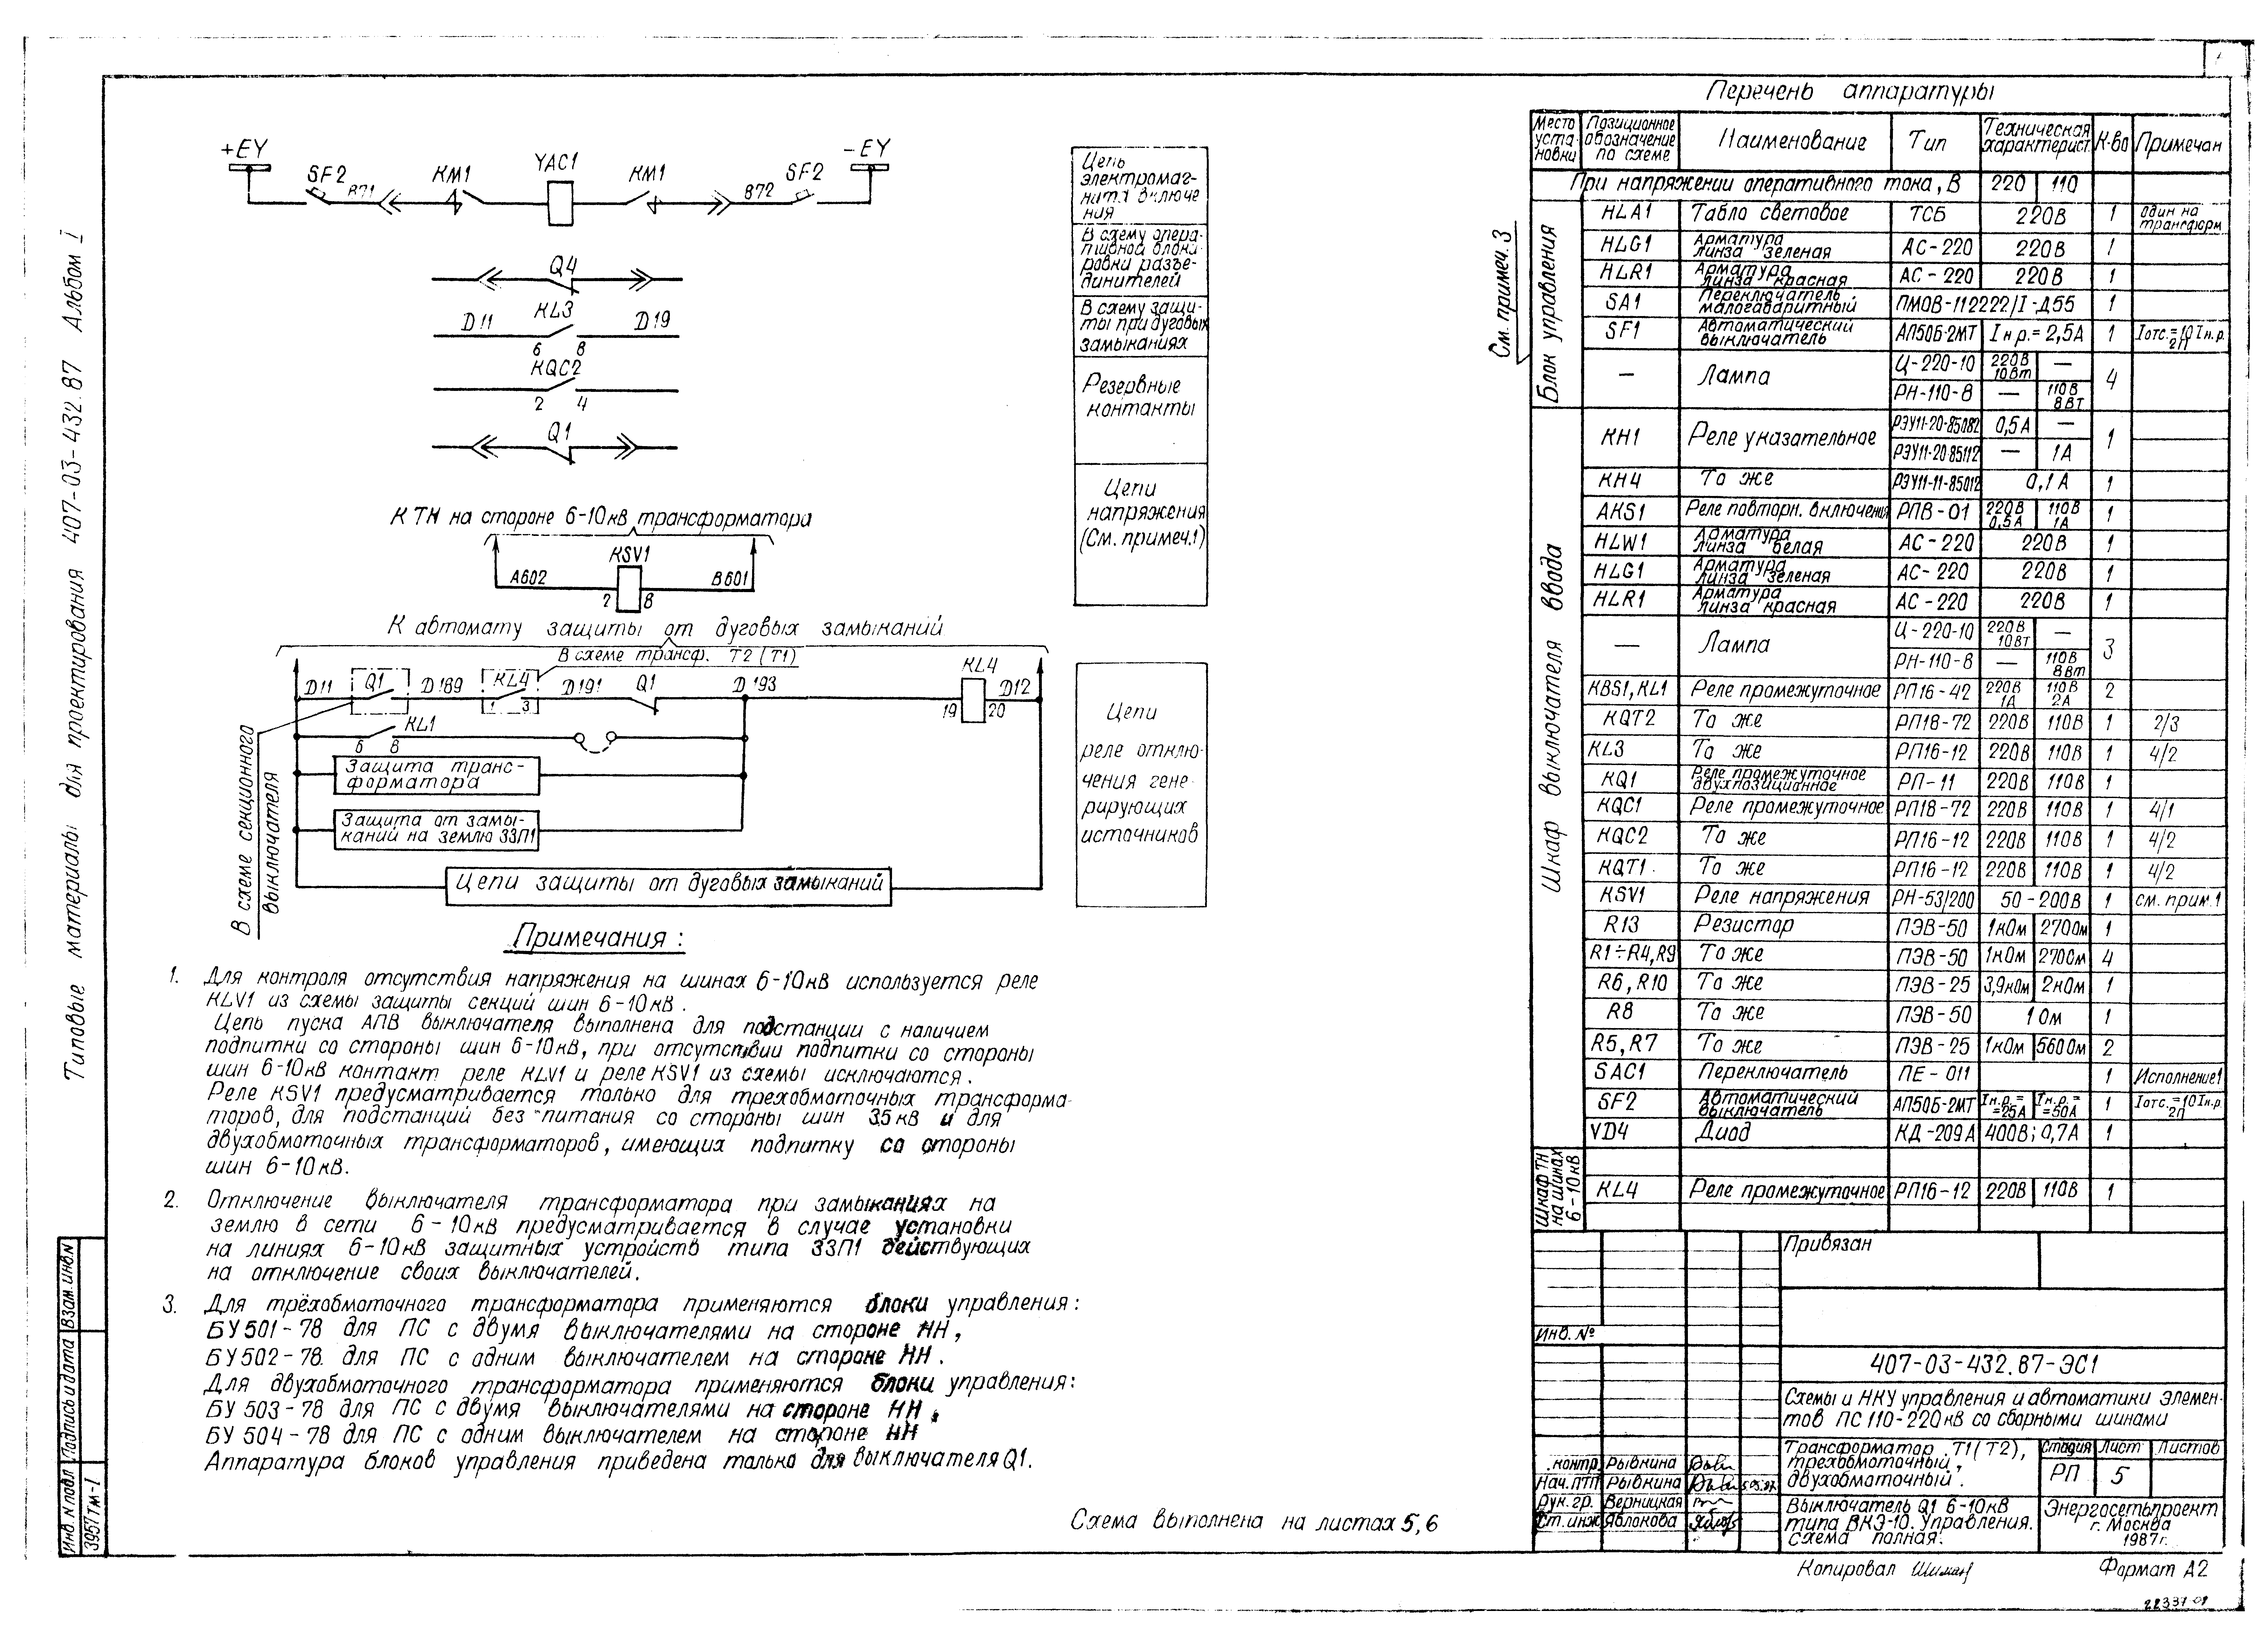 Типовые материалы для проектирования 407-03-432.87 Альбом I
+EY
-EY
SF2
871
KM1
YAC1
KM1
872
SF2
Q4
D11
KL3
D19
6 8
KQC2
2 4
Q1
К ТН на стороне 6-10кВ трансформатора
A602
KSV1
B601
2 8
Цепь
электромаг-
нита включе
ния
В схему опера-
тивной блоки-
ровки разъе-
динителей
В схему защи-
ты при дуговых
замыканиях
Резервные
контакты
Цепи
напряжения
(См. примеч.1)
К автомату защиты от дуговых замыканий
В схеме трансф. Т2 (Т1)
D11
Q1
D189
KL4
1 3
D191
Q1
D193
KL4
19 20
D12
KL1
6 8
Защита транс-
форматора
Защита от замы-
каний на землю ЗЗП1
Цепи защиты от дуговых замыканий
В схеме секционного
выключателя
Цепи
реле отклю-
чения гене-
рирующих
источников
Примечания:
1. Для контроля отсутствия напряжения на шинах 6-10кВ используется реле
KLV1 из схемы защиты секций шин 6-10кВ.
Цепь пуска АПВ выключателя выполнена для подстанции с наличием
подпитки со стороны шин 6-10кВ, при отсутствии подпитки со стороны
шин 6-10кВ контакт реле KLV1 и реле KSV1 из схемы исключаются.
Реле KSV1 предусматривается только для трехобмоточных трансформа-
торов, для подстанций без питания со стороны шин 35кВ и для
двухобмоточных трансформаторов, имеющих подпитку со стороны
шин 6-10кВ.
2. Отключение выключателя трансформатора при замыканиях на
землю в сети 6-10кВ предусматривается в случае установки
на линиях 6-10кВ защитных устройств типа ЗЗП1 действующих
на отключение своих выключателей.
3. Для трёхобмоточного трансформатора применяются блоки управления:
БУ501-78 для ПС с двумя выключателями на стороне НН,
БУ502-78. для ПС с одним выключателем на стороне НН.
Для двухобмоточного трансформатора применяются блоки управления:
БУ 503-78 для ПС с двумя выключателями на стороне НН,
БУ 504-78 для ПС с одним выключателем на стороне НН
Аппаратура блоков управления приведена только для выключателя Q1.
Схема выполнена на листах 5,6
Перечень аппаратуры
Место уста-новки Позиционное обозначение по схеме Наименование Тип Техническая характерист. К-во Примечан
При напряжении оперативного тока, В 220 110
См. примеч. 3
Блок управления
HLA1 Табло световое ТСБ 220В 1 один на трансформ
HLG1 Арматура линза зеленая АС-220 220В 1
HLR1 Арматура линза красная АС-220 220В 1
SA1 Переключатель малогабаритный ПМОВ-112222/I-Д55 1
SF1 Автоматический выключатель АП50Б-2МТ Iн.р.=2,5А 1 Iотс.=10Iн.р. 2П
— Лампа Ц-220-10 220В 10Вт — 4
РН-110-8 — 110В 8Вт
Шкаф выключателя ввода
KH1 Реле указательное РЭУ11-20-85082 0,5А — 1
РЭУ11-20 85112 — 1А
KH4 То же РЭУ11-11-85012 0,1А 1
AKS1 Реле повторн. включения РПВ-01 220В 0,5А 110В 1А 1
HLW1 Арматура линза белая АС-220 220В 1
HLG1 Арматура линза зеленая АС-220 220В 1
HLR1 Арматура линза красная АС-220 220В 1
— Лампа Ц-220-10 220В 10Вт — 3
РН-110-8 — 110В 8Вт
KBS1, KL1 Реле промежуточное РП16-42 220В 1А 110В 2А 2
KQT2 То же РП18-72 220В 110В 1 2/3
KL3 То же РП16-12 220В 110В 1 4/2
KQ1 Реле промежуточное двухпозиционное РП-11 220В 110В 1
KQC1 Реле промежуточное РП18-72 220В 110В 1 4/1
KQC2 То же РП16-12 220В 110В 1 4/2
KQT1 То же РП16-12 220В 110В 1 4/2
KSV1 Реле напряжения РН-53/200 50-200В 1 см. прим.1
R13 Резистор ПЭВ-50 1кОм 270Ом 1
R1÷R4, R9 То же ПЭВ-50 1кОм 270Ом 4
R6, R10 То же ПЭВ-25 3,9кОм 2кОм 1
R8 То же ПЭВ-50 1Ом 1
R5, R7 То же ПЭВ-25 1кОм 560Ом 2
SAC1 Переключатель ПЕ-011 1 Исполнение1
SF2 Автоматический выключатель АП50Б-2МТ Iн.р.= =25А Iн.р.= =50А 1 Iотс.=10Iн.р. 2П
VD4 Диод КД-209А 400В; 0,7А 1
Шкаф ТН на шинах 6-10кВ
KL4 Реле промежуточное РП16-12 220В 110В 1
Привязан
Инв. №
407-03-432.87-ЭС1
Схемы и НКУ управления и автоматики элемен-
тов ПС 110-220кВ со сборными шинами
Трансформатор Т1(Т2),
трехобмоточный,
двухобмоточный.
Стадия Лист Листов
РП 5
Выключатель Q1 6-10кВ
типа ВКЭ-10. Управления.
Схема полная.
Энергосетьпроект
г. Москва
1987г.
.контр. Рывкина
Нач.ПТП Рывкина
Рук.гр. Верницкая
Ст.инж Яблокова
Копировал
Формат А2
22337-01
Инв.N подл. Подпись и дата Взам.инв.N
3957тм-I